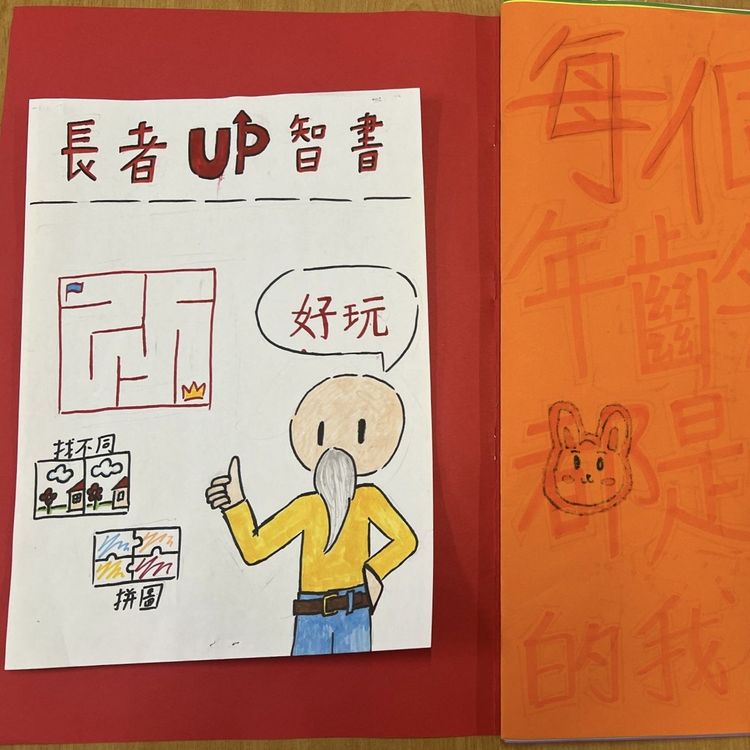 長者UP智書
好玩
找不同
拼圖
每個
年齡
都是
的我